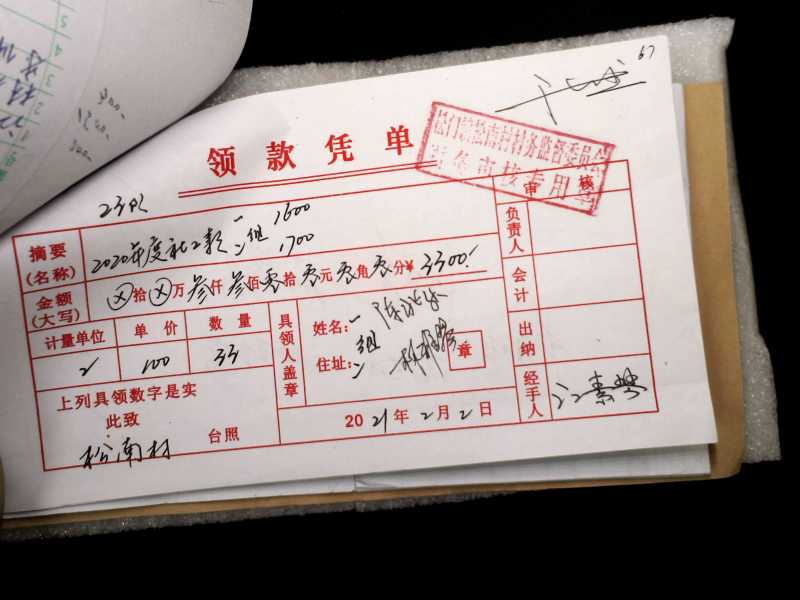 67
松门镇松南村村务监督委员会
财务审核专用章
领款凭单
审核
摘要
(名称)
2020年度社工款
一
二
组
1600
1700
负责人
金额
(大写)
⊗拾⊗万叁仟叁佰零拾零元零角零分¥3300.
会计
计量单位
单价
数量
100
33
具领人盖章
姓名:
住址:
一
组
二
章
出纳
上列具领数字是实
此致
松南村
台照
2021年2月2日
经手人
5
4
3
2
1